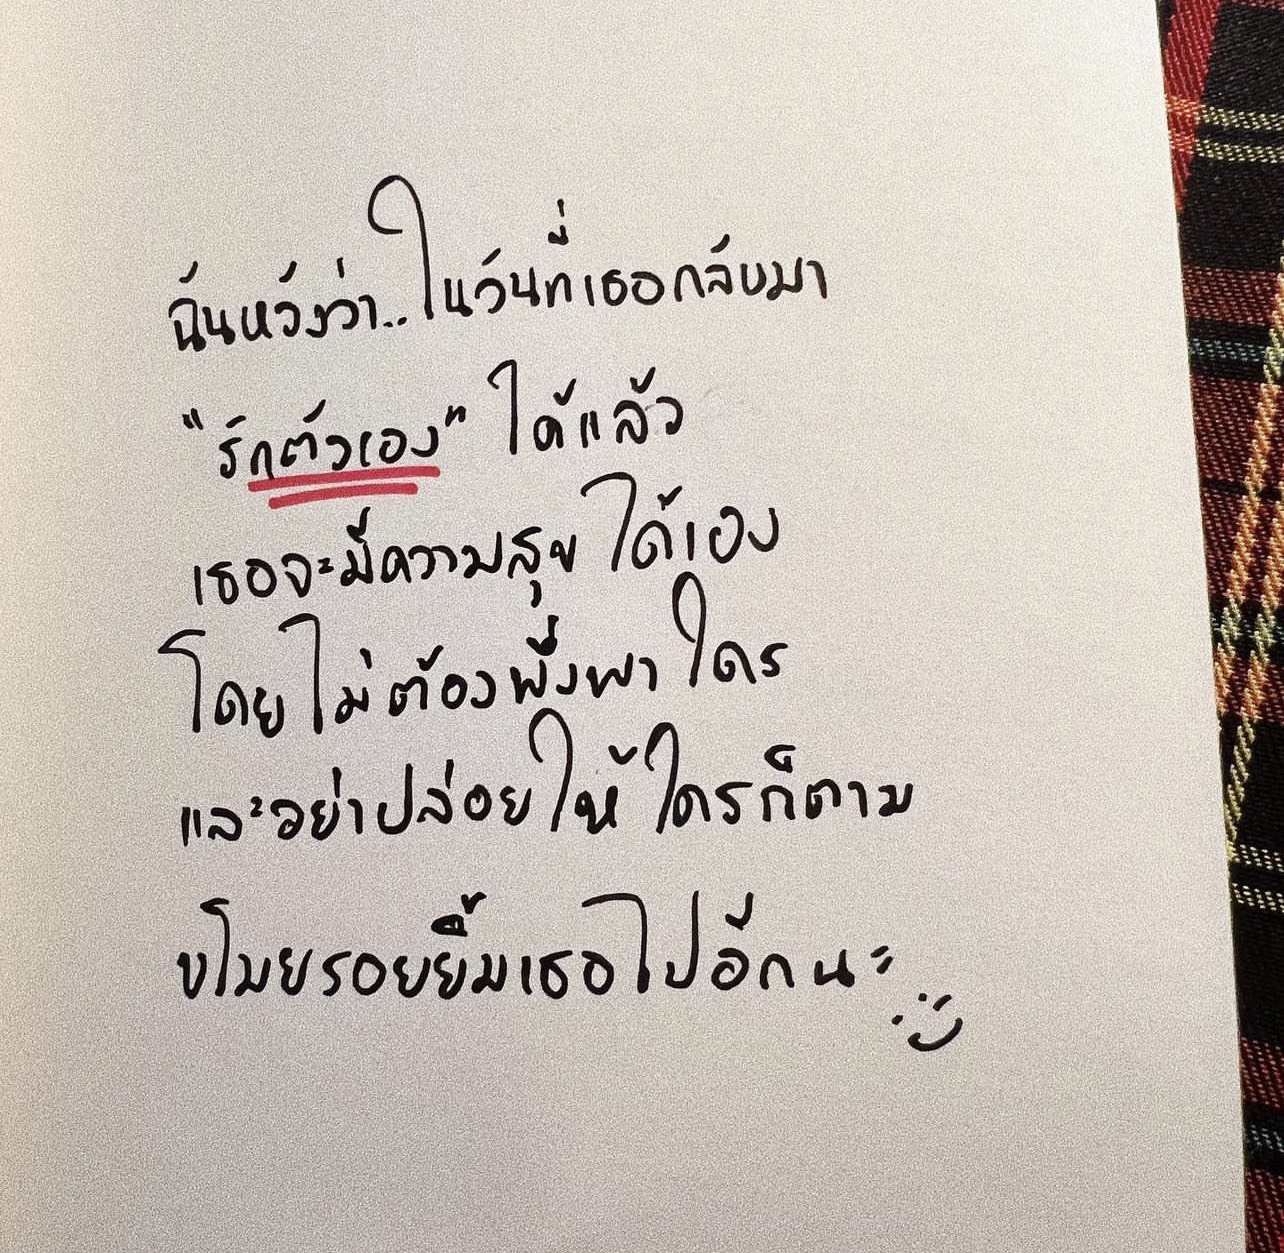 ฉันหวังว่า..ในวันที่เธอกลับมา
"รักตัวเอง" ได้แล้ว
เธอจะมีความสุขได้เอง
โดยไม่ต้องพึ่งพาใคร
และอย่าปล่อยให้ใครก็ตาม
ขโมยรอยยิ้มเธอไปอีกนะ